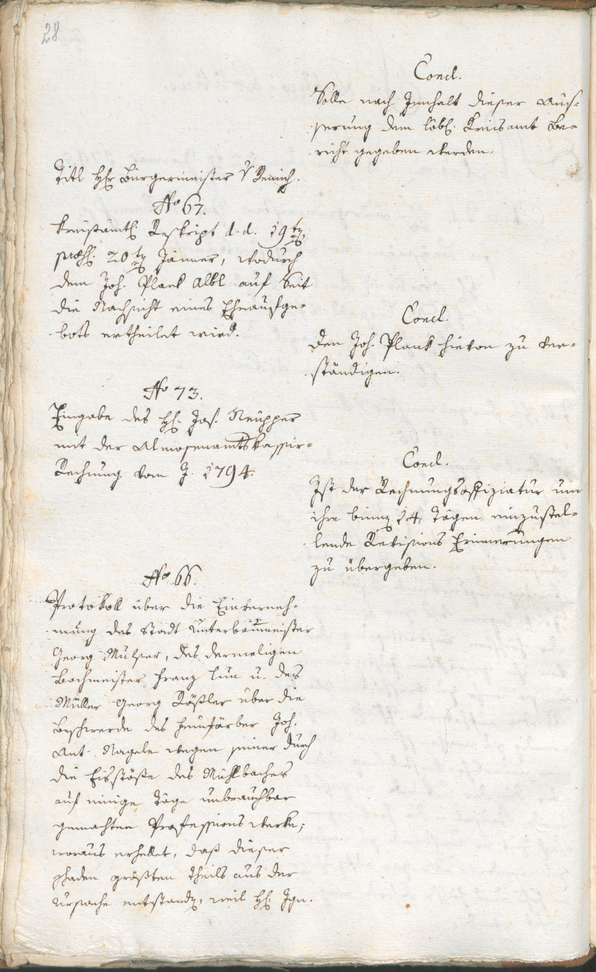 28
Concl.
Solle nach Innhalt dieser Äus-
serung dem löbl. Kreisamt Be-
richt gegeben werden.
Titl H: Bürgermeister v
No 67.
Kreisämtl. Reskript d. d. 19ten
präs. 20ten Jänner, wodurch
dem Joh. Plank allh auf Beit
die Nachsicht eines Eheaufge-
bots ertheilet wird.
Concl.
Den Joh. Plank hievon zu ver-
ständigen.
No 73.
Eingabe des H: Jos. Neupper
mit der Almosenamtskassir-
Rechnung vom J. 1794.
Concl.
Ist der Rechnungsoffiziatur um
ihre binnen 14 Tägen einzustel-
lende Revisions Erinnerungen
zu übergeben.
No 66.
Protokoll über die Einverneh-
mung des Stadt Unterbaumeister
Georg Mulser, des dermaligen
Bachmeister Franz u. des
Müller Georg Rößler über die
Beschwerde des Joh.
Ant. Nagele wegen seiner durch
die Eisstöße des Mühlbaches
auf einige Täge unbrauchbar
gemachten Professions Werke,
woraus erhellet, daß dieser
Schaden größten theils aus der
Ursache entstanden, weil H: Ign.